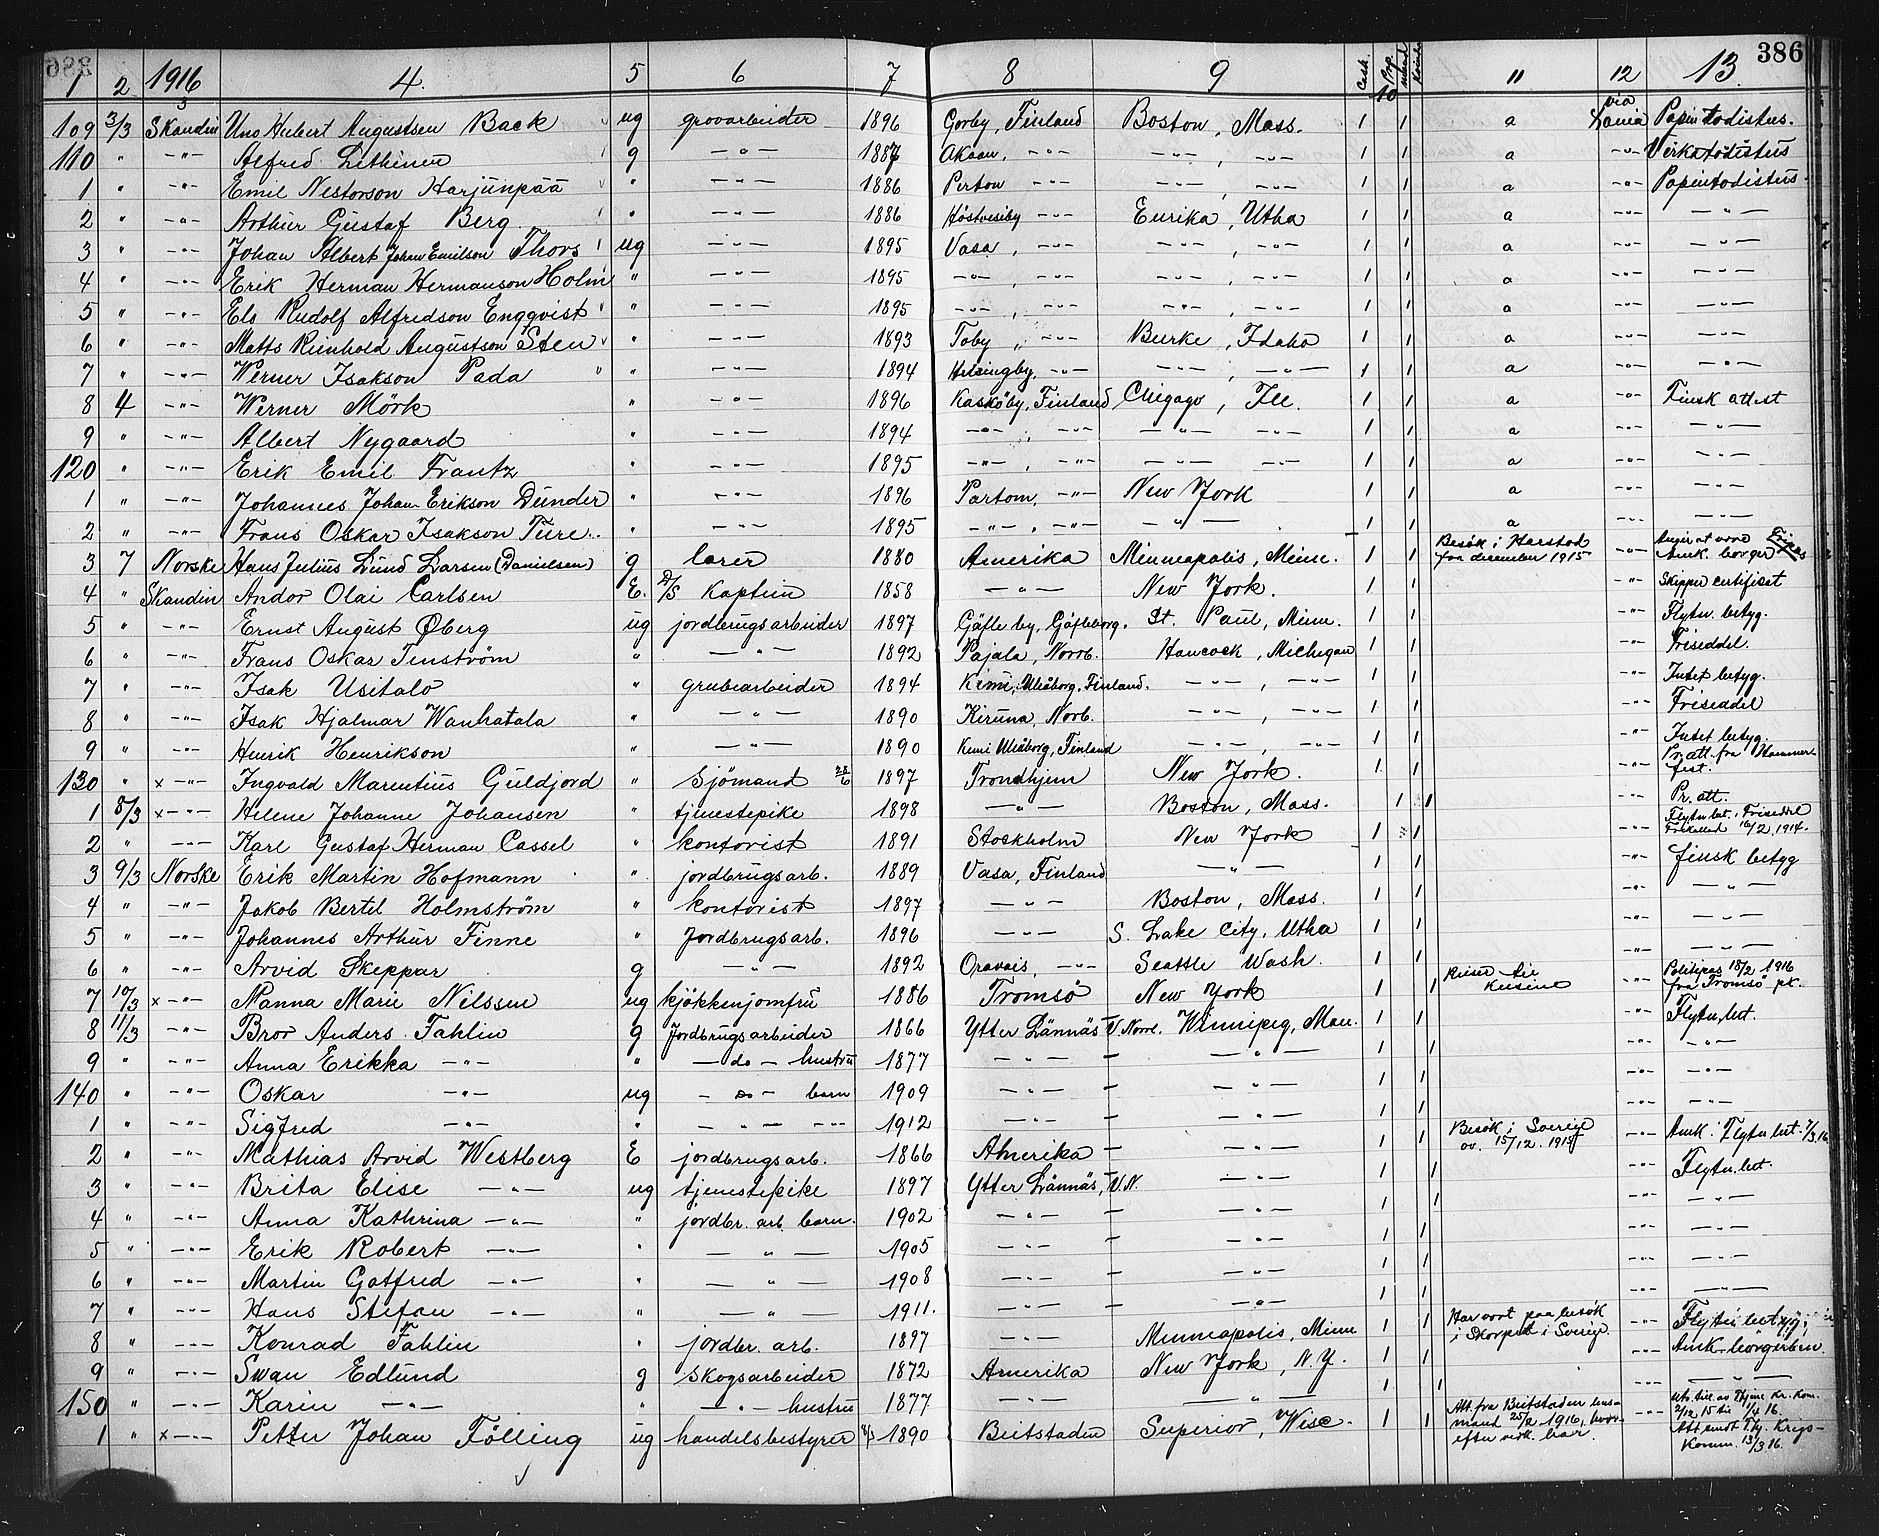 386
1 2 1916 3 4. 5 6 7 8 9 Cash. Prp. 10 11 12 13
109 3/3 Skandin Uno Hubert Augustsen Back ug grovarbeider 1896 Gorby, Finland Boston, Mass. 1 1 a via Papintodistus.
110 " -"- Alfred Lethinen g -"- 1887 Akaan, -"- -"-, -"- 1 1 a -"- Virkatodistus
1 " -"- Emil Nestorson Harjunpää " -"- 1886 Perton -"- -"-, -"- 1 1 a -"- Papintodistus
2 " -"- Arthur Gustaf Berg " -"- 1886 Höstvesiby -"- Eurika, Utha 1 1 a -"- -"-
3 " -"- Johan Albert Johan Emilson Thors ug -"- 1895 Vasa, -"- -"-, -"- 1 1 a -"- -"-
4 " -"- Erik Herman Hermanson Holm " -"- 1895 -"-, -"- -"-, -"- 1 1 a -"- -"-
5 " -"- Els Rudolf Alfredson Engqvist " -"- 1895 -"-, -"- -"-, -"- 1 1 a -"- -"-
6 " -"- Matts Reinhold Augustson Sten " -"- 1893 Toby, -"- Burke, Idaho 1 1 a -"- -"-
7 " -"- Werner Isakson Pada " -"- 1894 Helsingby, -"- -"-, -"- 1 1 a -"- -"-
8 4 -"- Werner Mörk " -"- 1896 Kasköby, Finland Chigago, Ill. 1 1 a -"- Finsk attest
9 " -"- Albert Nygaard " -"- 1894 -"-, -"- -"- -"- 1 1 a -"- -"-
120 " -"- Erik Emil Frantz " -"- 1895 -"-, -"- -"- -"- 1 1 a -"- -"-
1 " -"- Johannes Johan Erikson Dunder " -"- 1896 Partom, -"- New York 1 1 a -"- -"-
2 " -"- Frans Oskar Isakson Ture " -"- 1895 -"-, -"- -"- 1 1 a -"- -"-
3 7 Norske Hans Julius Lund Larsen (Danielsen) g lærer 1880 Amerika Minneapolis, Minn. 1 1 Besøk i Harstad fra december 1915 -"- Angir at være Amk. borger
4 " Skandin Andor Olai Carlsen E. D/S Kaptein 1858 -"- New York. 1 1 -"- Skipper certifikat
5 " -"- Ernst August Øberg ug jordbrugsarbeider 1897 Gäfle by, Gäfleborg. St. Paul, Minn. 1 1 -"- Flytn. betyg.
6 " -"- Frans Oskar Tenström " -"- 1892 Pajala, Norrb. Hancock, Michigan 1 1 -"- Friseddel.
7 " -"- Isak Usitalo " grubearbeider 1894 Kemi, Uleåborg, Finland. -"-, -"- 1 1 -"- Intet betyg.
8 " -"- Isak Hjalmar Wanhatala " -"- 1890 Kiruna, Norb. -"-, -"- 1 1 -"- Friseddel
9 " -"- Henrik Henrikson " -"- 1890 Kemi Uleåborg, Finland -"-, -"- 1 1 -"- Intet betyg.
130 " x -"- Ingvald Marentius Guldjord " Sjömand 28/6 1897 Trondhjem New York. 1 1 -"- Pr. att. fra Hammerfest.
1 8/3 x -"- Helene Johanne Johansen " tjenestepike 1898 -"- Boston, Mass. 1 1 -"- Pr. att.
2 " -"- Karl Gustaf Herman Cassel " kontorist 1891 Stockholm New York 1 1 -"- Flytn. bet., Friseddel 16/2 1914.
3 9/3 Norske Erik Martin Hofmann " jordbrugsarb. 1889 Vasa, Finland -"- 1 1 finsk betyg
4 " -"- Jakob Bertel Holmström " kontorist 1897 -"- Boston, Mass. 1 1 -"- -"-
5 " -"- Johannes Arthur Finne " Jordbrugsarb. 1896 -"- S. Lake City, Utha 1 1 -"- -"-
6 " -"- Arvid Skeppar g -"- 1892 Oravais, -"- Seattle Wash. 1 1 -"- -"-
7 10/3 x -"- Nanna Marie Nilssen ug kjøkkenjomfru 1886 Tromsö New York 1 1 Reiser til Kusine -"- Politipas 18/2 1916 fra Tromsö pk.
8 11/3 -"- Bror Anders Fahlin g Jordbrugsarbeider 1866 Ytter Lännäs V. Norrl. Winnipeg, Man. 1 1 Flytn. bet.
9 " -"- Anna Erikka -"- " -do- hustru 1877 -"- -"- 1 1 -"- -"-
140 " -"- Oskar -"- ug -do- barn 1909 -"- -"- 1 1 -"- -"-
1 " -"- Sigfred -"- " -"- -"- 1912 -"- -"- 1 1 -"- -"-
2 " -"- Mathias Arvid Westberg E jordbrugsarb. 1866 Amerika -"- 1 1 Besök i Sverige ov. 15/12. 1915 -"- Amk. Flytn. bet. 7/3 16
3 " -"- Brita Elise -"- ug tjenestepike 1897 Ytter Lännäs, V.N. -"- 1 1 -"- Flytn. bet.
4 " -"- Anna Kathrina -"- " jordbr. arb. barn. 1902 -"- -"- 1 1 -"- -"-
5 " -"- Erik Robert -"- " -"- 1905 -"- -"- 1 1 -"- -"-
6 " -"- Martin Gotfred -"- " -"- 1908 -"- -"- 1 1 -"- -"-
7 " -"- Hans Stefan -"- " -"- 1911. -"- -"- 1 1 -"- -"-
8 " -"- Konrad Fahlin " jordbr. arb. 1897 -"- Minneapolis, Minn 1 1 Har vært paa besök i Skorped i Sverige. -"- Flytn. betyg;
9 " -"- Swan Edlund g Skogsarbeider 1872 Amerika New York, N.Y. 1 1 -"- Amk. borgerbev.
150 " -"- Karin -"- " -"- hustru 1877 -"- -"- 1 1 -"- -"-
1 " x -"- Petter Johan Fölling ug handelsbestyrer 1890 Beitstaden Superior, Wisc. 1 1 Att. fra Beitstaden lensmand 25/2 1916, hvorefter vedk. har -"- Utv. till. av Thjem Kr. Kom. 2/12 15 til 1/4 16. Att. Krigs-Komm. 13/3 16.